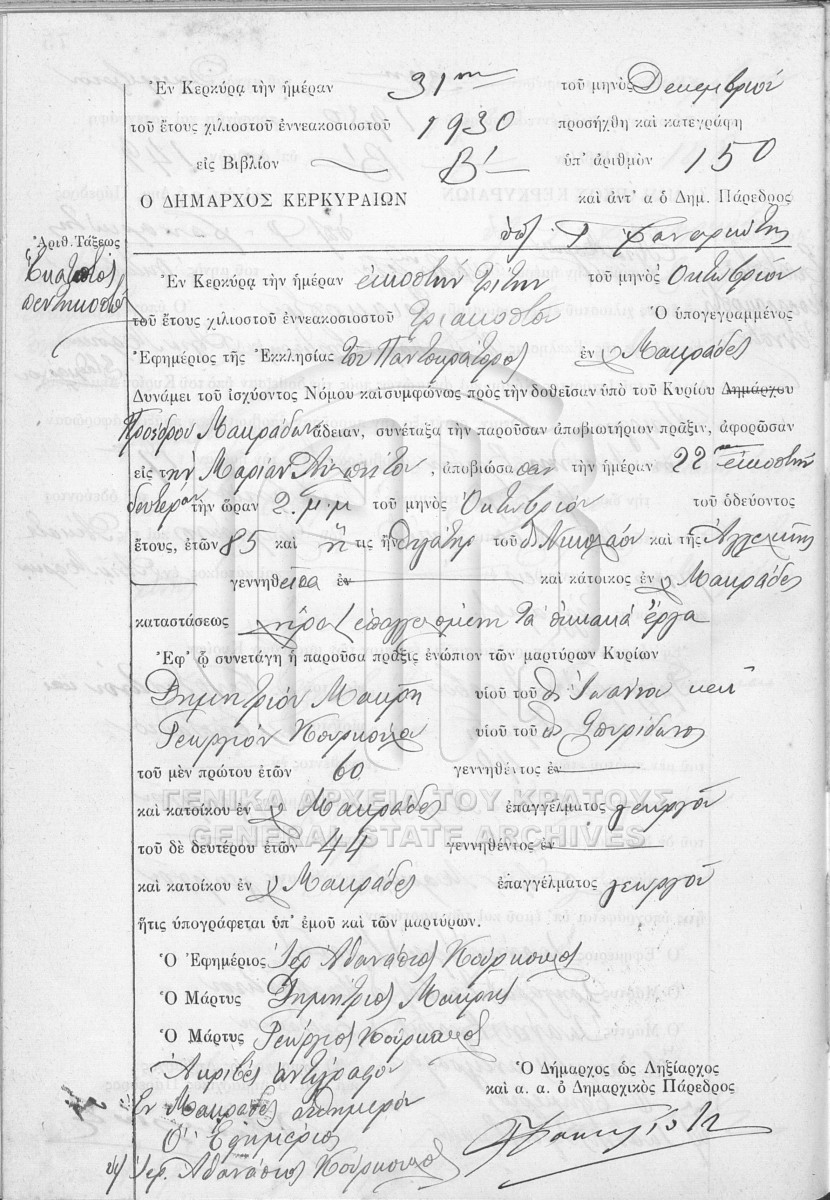 Ἐν Κερκύρᾳ τὴν ἡμέραν 31ην τοῦ μηνὸς Δεκεμβρίου
τοῦ ἔτους χιλιοστοῦ ἐννεακοσιοστοῦ 1930 προσήχθη καὶ κατεγράφη
εἰς Βιβλίον Β' ὑπ' ἀριθμὸν 150
Ο ΔΗΜΑΡΧΟΣ ΚΕΡΚΥΡΑΙΩΝ καὶ ἀντ' α ὁ Δημ. Πάρεδρος
Ἀριθ. Τάξεως
Ἑκατοστὸς
πεντηκοστὸς
Ἐν Κερκύρᾳ τὴν ἡμέραν εἰκοστὴν τρίτην τοῦ μηνὸς Ὀκτωβρίου
τοῦ ἔτους χιλιοστοῦ ἐννεακοσιοστοῦ τριακοστοῦ Ὁ ὑπογεγραμμένος
Ἐφημέριος τῆς Ἐκκλησίας τοῦ Παντοκράτορος ἐν Μακράδες
Δυνάμει τοῦ ἰσχύοντος Νόμου καὶ συμφώνως πρὸς τὴν δοθεῖσαν ὑπὸ τοῦ Κυρίου Δημάρχου
Προέδρου Μακράδων ἄδειαν, συνέταξα τὴν παροῦσαν ἀποβιωτήριον πρᾶξιν, ἀφορῶσαν
εἰς τὴν Μαρίαν, ἀποβιώσασαν τὴν ἡμέραν 22 εἰκοστὴν
δευτέραν τὴν ὥραν 2 μ.μ τοῦ μηνὸς Ὀκτωβρίου τοῦ ὁδεύοντος
ἔτους, ἐτῶν 85 καὶ ἥτις ἦν θυγάτηρ τοῦ Νικολάου καὶ τῆς Ἀγγελικῆς
γεννηθεῖσα ἐν καὶ κάτοικος ἐν Μακράδες
καταστάσεως χήρας ἐπαγγελομένη τὰ οἰκιακὰ ἔργα
Ἐφ' ᾧ συνετάγη ἡ παροῦσα πρᾶξις ἐνώπιον τῶν μαρτύρων Κυρίων
Δημητρίου Μακρῆ υἱοῦ τοῦ Ἰωάννου καὶ
Γεωργίου Κούρκουλου υἱοῦ τοῦ Σπυρίδωνος
τοῦ μὲν πρώτου ἐτῶν 60 γεννηθέντος ἐν
καὶ κατοίκου ἐν Μακράδες ἐπαγγέλματος γεωργοῦ
ΓΕΝΙΚΑ ΑΡΧΕΙΑ ΤΟΥ ΚΡΑΤΟΥΣ
GENERAL STATE ARCHIVES
τοῦ δὲ δευτέρου ἐτῶν 44 γεννηθέντος ἐν
καὶ κατοίκου ἐν Μακράδες ἐπαγγέλματος γεωργοῦ
ἥτις ὑπογράφεται ὑπ' ἐμοῦ καὶ τῶν μαρτύρων.
Ὁ Ἐφημέριος Ἱερ. Ἀθανάσιος Κούρκουλος
Ὁ Μάρτυς Δημήτριος Μακρῆς
Ὁ Μάρτυς Γεώργιος Κούρκουλος
Ἀκριβὲς ἀντίγραφον
Ἐν Μακράδες αὐθημερόν
Ὁ Ἐφημέριος
Ἱερ. Ἀθανάσιος Κούρκουλος
Ὁ Δήμαρχος ὡς Ληξίαρχος
καὶ α. α. ὁ Δημαρχικὸς Πάρεδρος